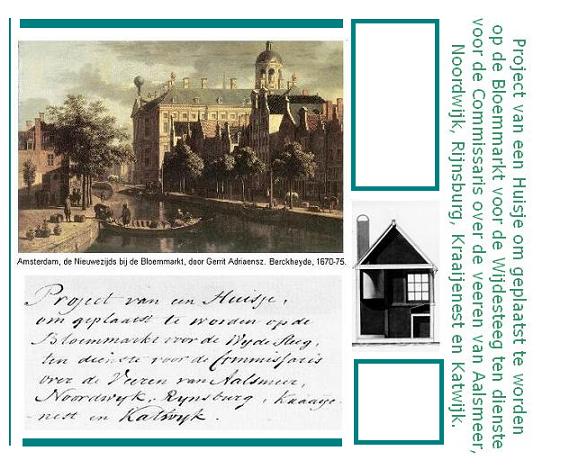 Amsterdam, de Nieuwezijds bij de Bloemmarkt, door Gerrit Adriaensz. Berckheyde, 1670-75.
Project van een Huisje,
om geplaatst te worden op de
Bloemmarkt voor de Wyde Steeg,
ten dienste voor de Commissaris
over de Veeren van Aalsmeer,
Noordwyk, Rynsburg, Kraaije-
nest en Katwyk.
Project van een Huisje om geplaatst te worden
op de Bloemmarkt voor de Wijdesteeg ten dienste
voor de Commissaris over de veeren van Aalsmeer,
Noordwijk, Rijnsburg, Kraaijenest en Katwijk.